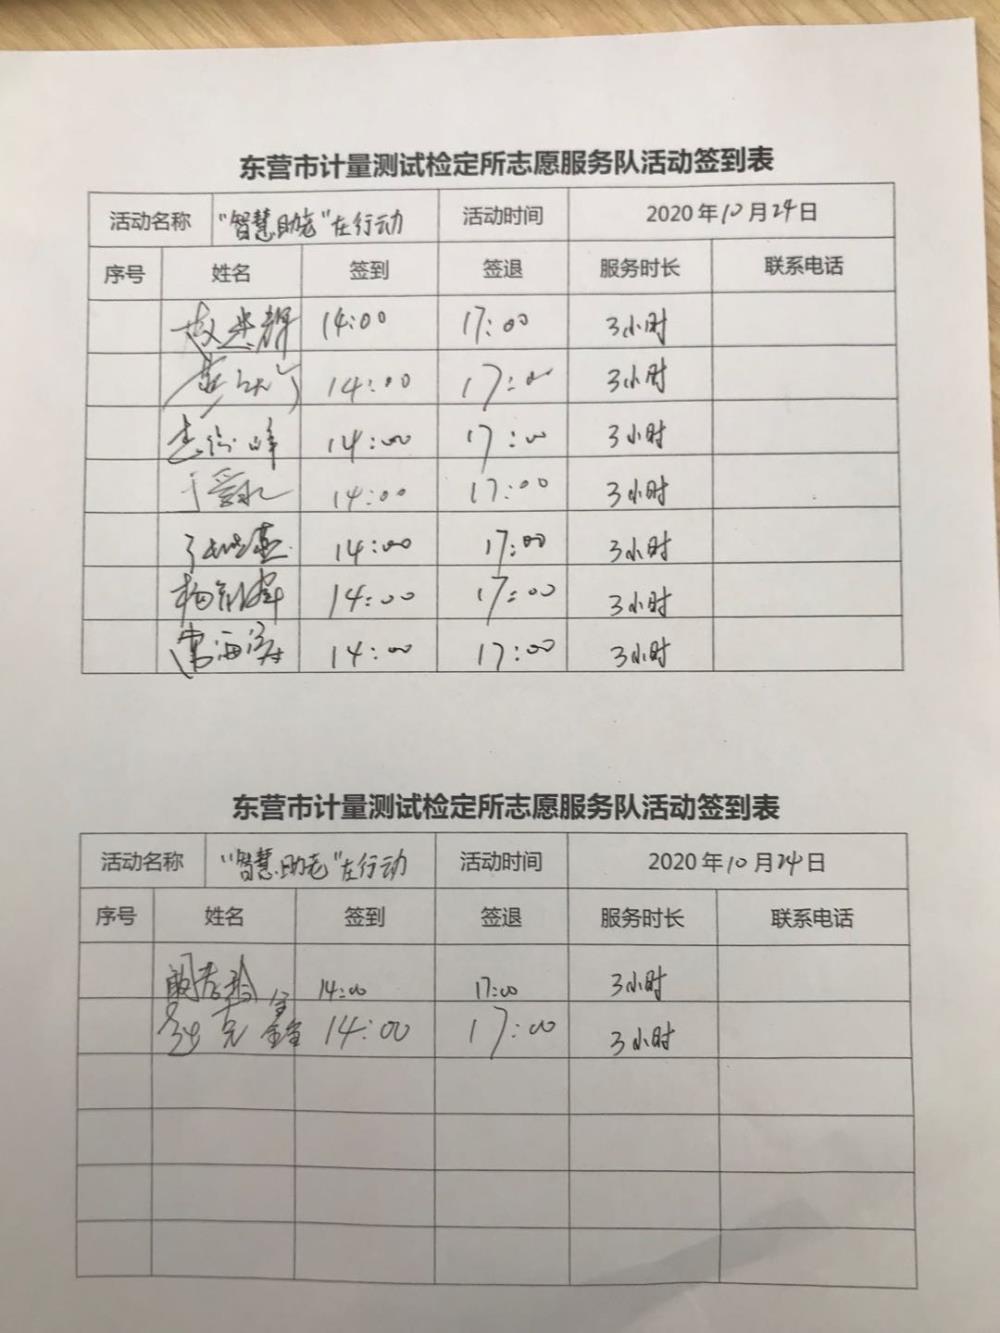 东营市计量测试检定所志愿服务队活动签到表
活动名称 "智慧助老"在行动 活动时间 2020年10月24日
序号 姓名 签到 签退 服务时长 联系电话
14:00 17:00 3小时
14:00 17:00 3小时
14:00 17:00 3小时
于爱永 14:00 17:00 3小时
14:00 17:00 3小时
14:00 17:00 3小时
常海涛 14:00 17:00 3小时
东营市计量测试检定所志愿服务队活动签到表
活动名称 "智慧助老"在行动 活动时间 2020年10月24日
序号 姓名 签到 签退 服务时长 联系电话
14:00 17:00 3小时
14:00 17:00 3小时